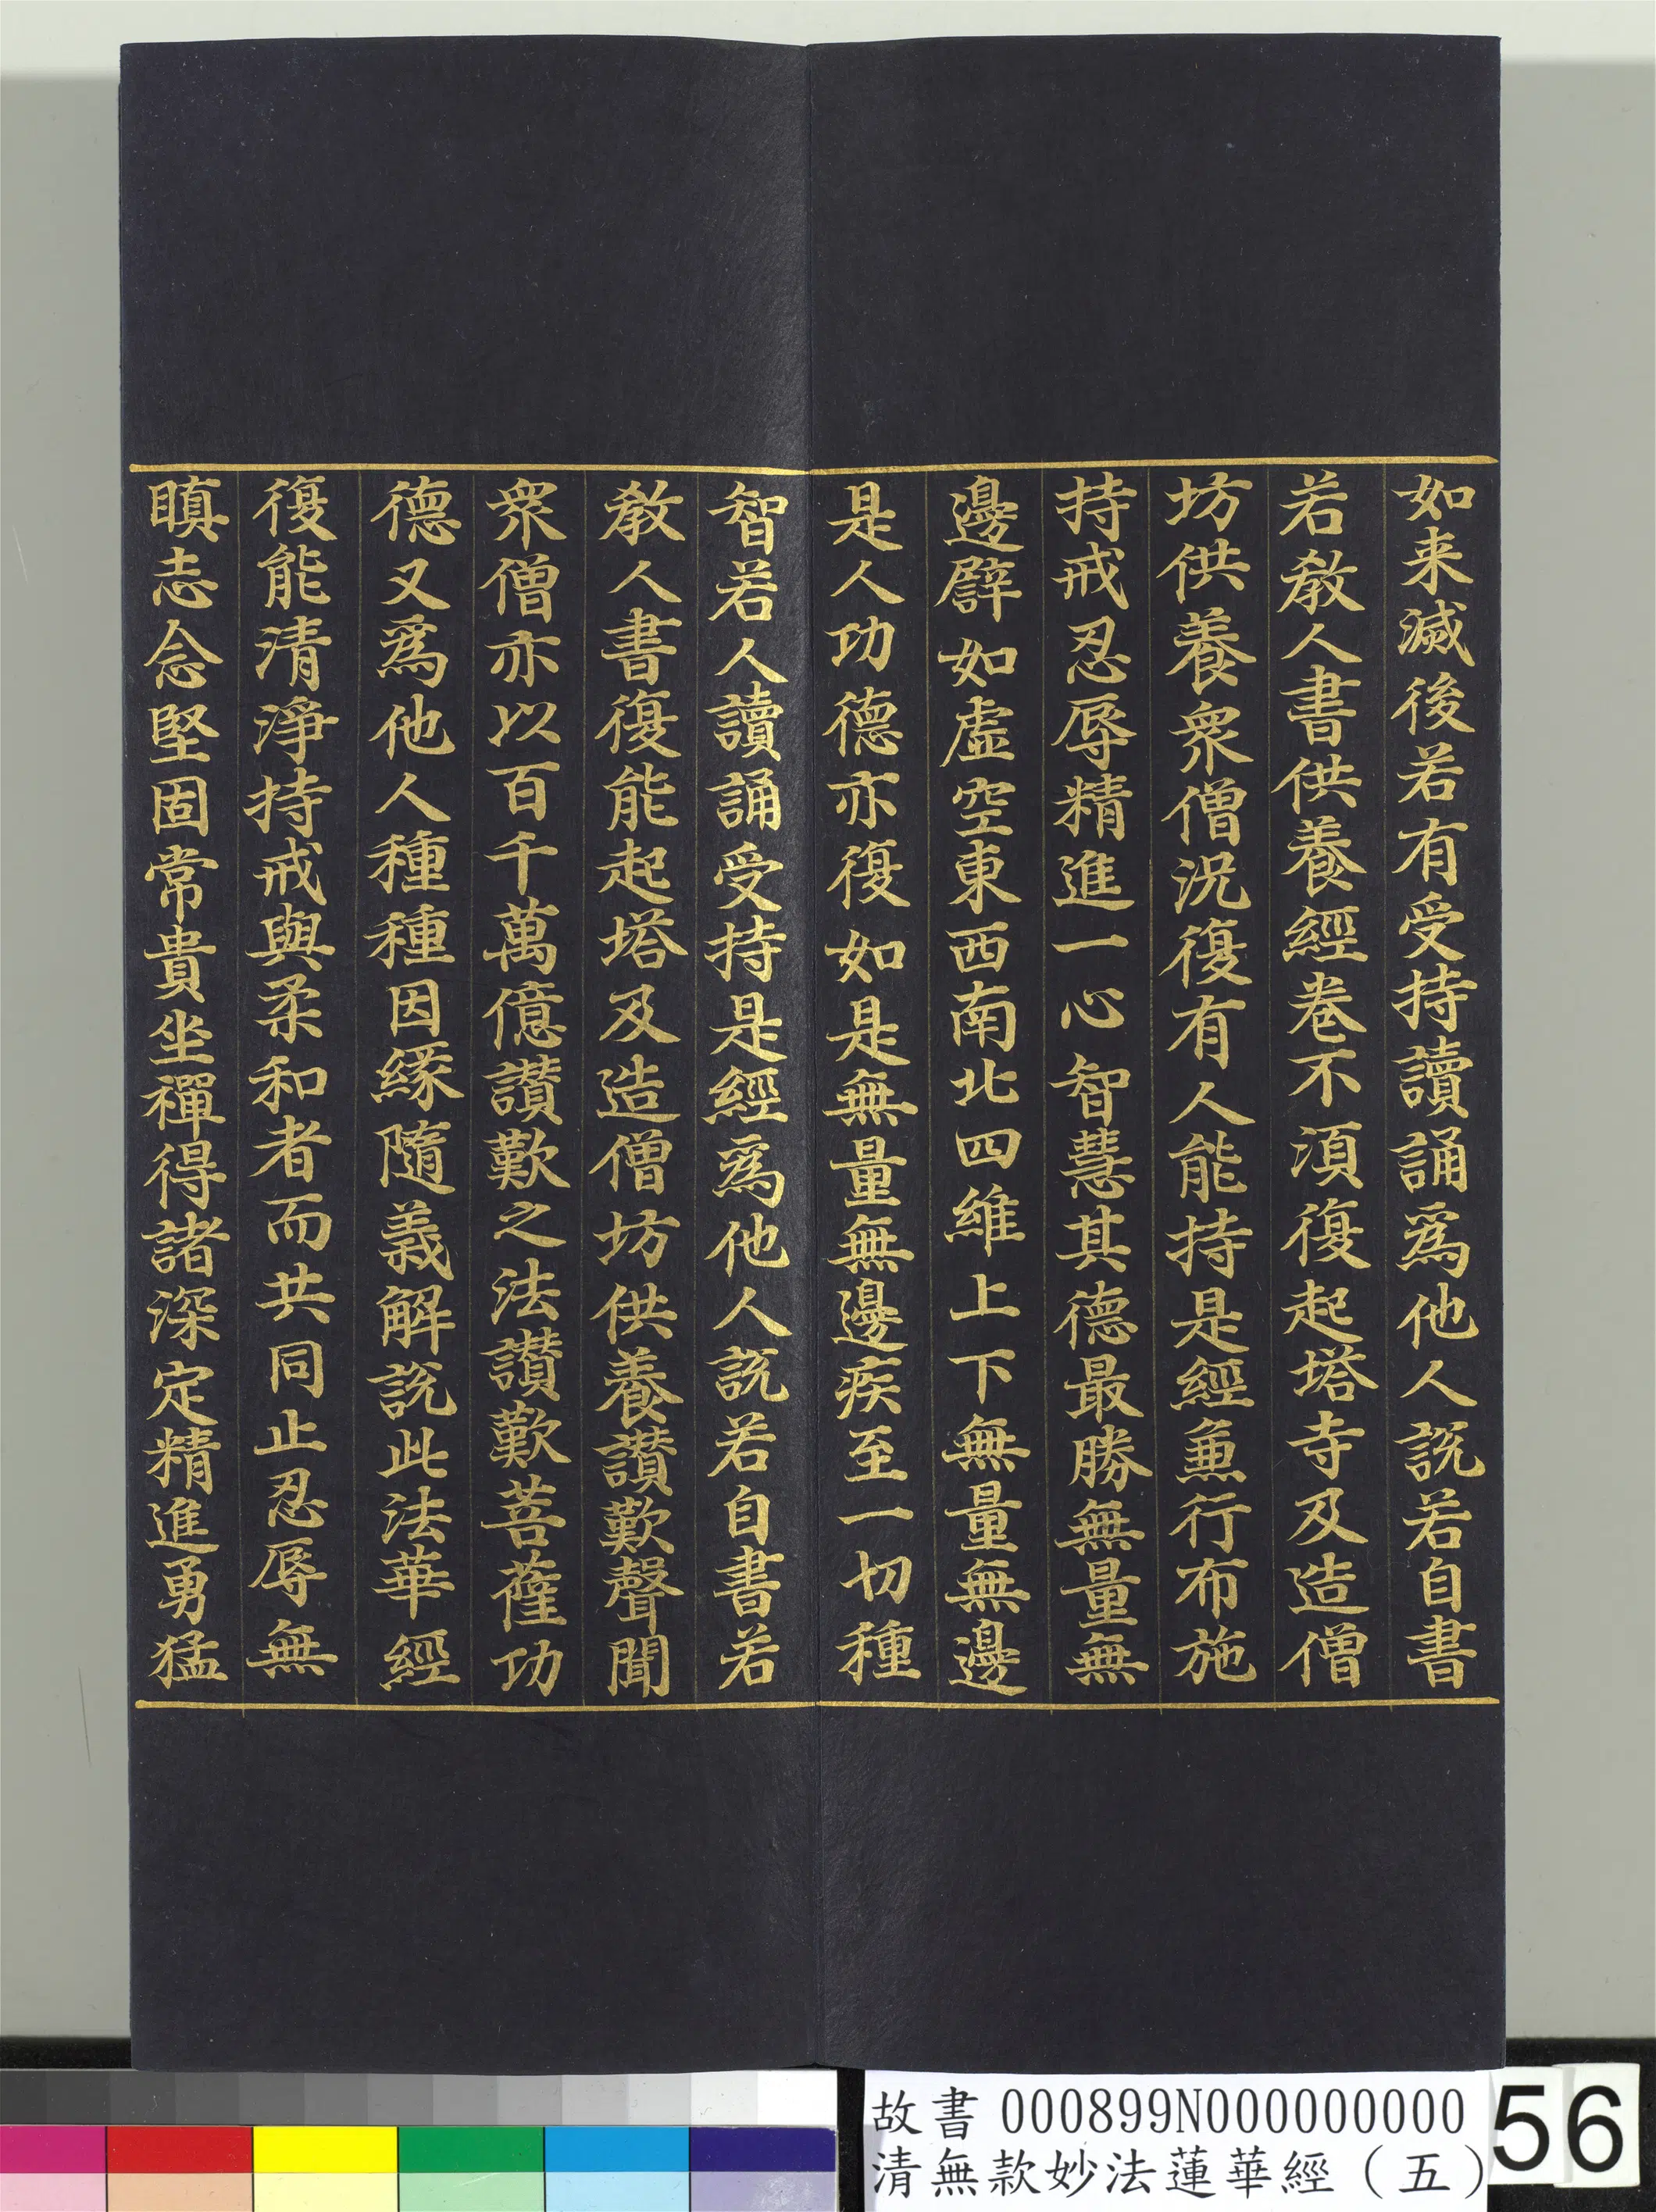 如来滅後若有受持讀誦爲他人説若自書
若教人書供養經卷不湏復起塔寺及造僧
坊供養衆僧況復有人能持是經兼行布施
持戒忍辱精進一心智慧其德最勝無量無
邊譬如虛空東西南北四維上下無量無邊
是人功德亦復如是無量無邊疾至一切種
智若人讀誦受持是經爲他人説若自書若
教人書復能起塔及造僧坊供養讃歎聲聞
衆僧亦以百千萬億讃歎之法讃歎菩薩功
德又爲他人種種因緣隨義解説此法華經
復能清淨持戒與柔和者而共同止忍辱無
瞋志念堅固常貴坐禪得諸深定精進勇猛
故書 000899N000000000
清無款妙法蓮華經（五）
56